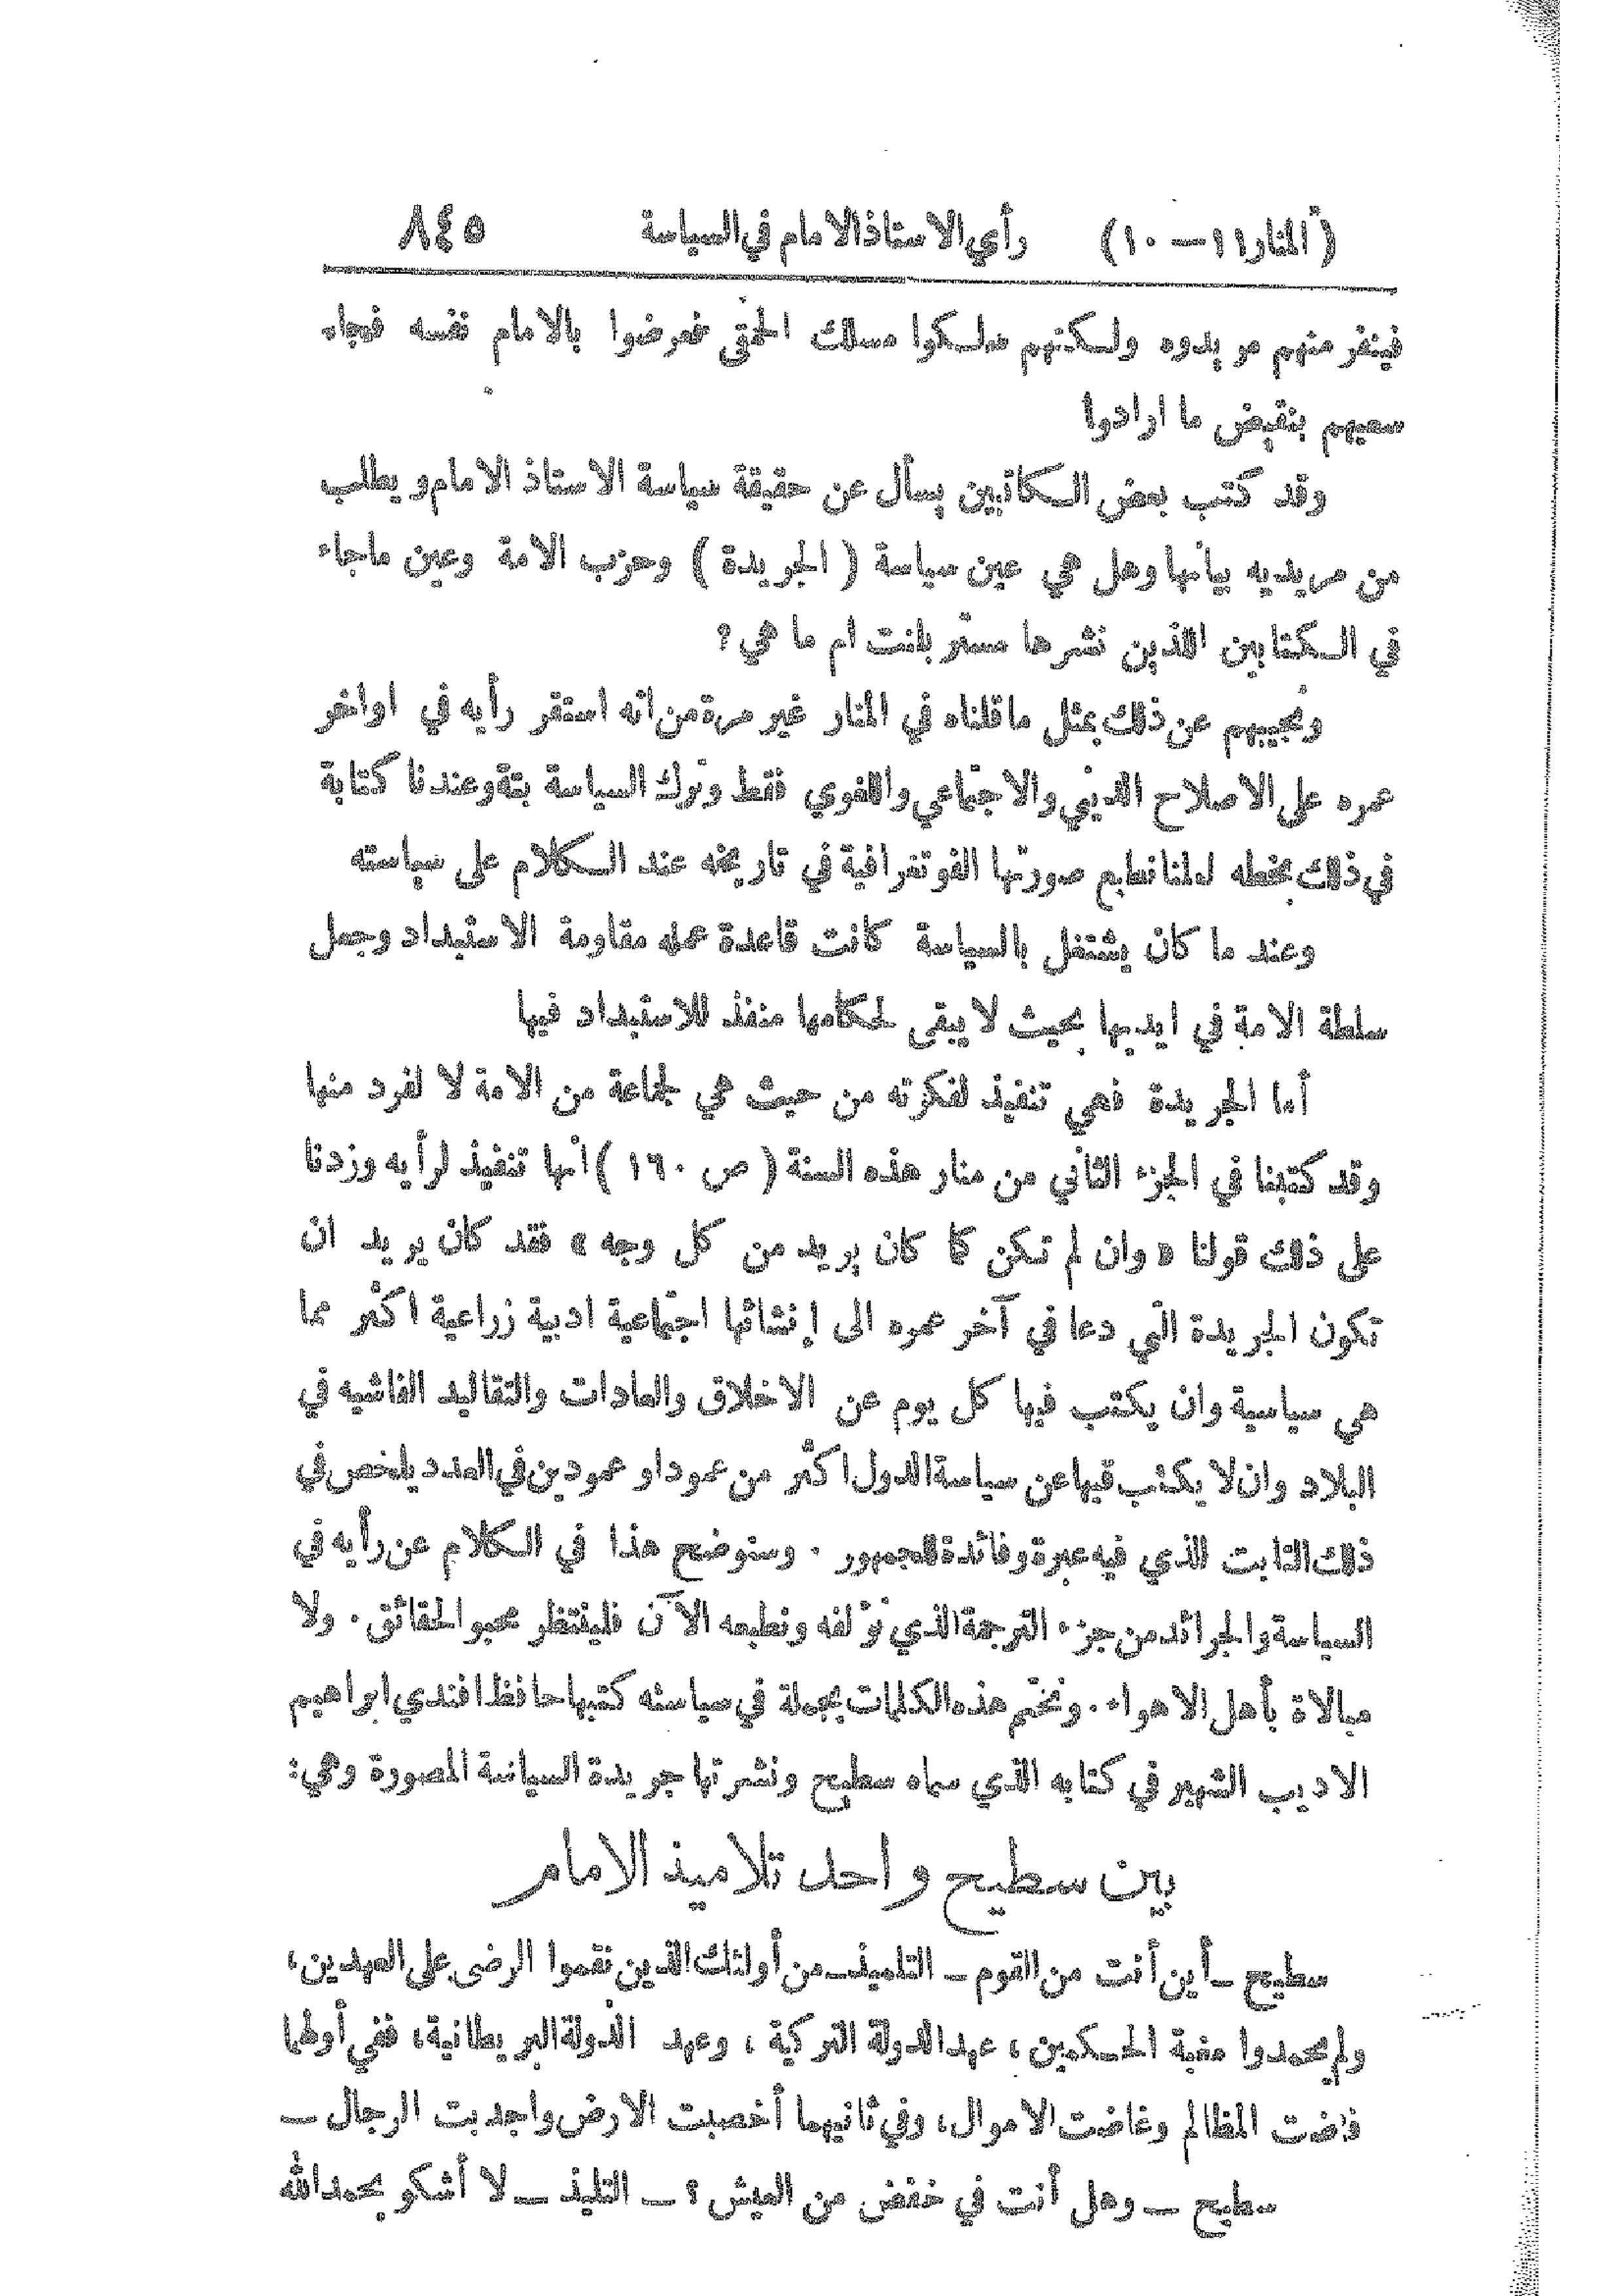 (المنار ١١ — ١٠) رأي الاستاذ الامام في السياسة ٨٤٥
فينفر منهم مو يدوه ولكنهم سلكوا مسلك الحمقى فعرضوا بالامام نفسه فجاء
سعيهم بنقيض ما ارادوا
وقد كتب بعض الكاتبين يسأل عن حقيقة سياسة الاستاذ الامام و يطلب
من مريديه بيانها وهل هي عين سياسة ( الجريدة ) وحزب الامة وعين ماجاء
في الكتابين اللذين نشرها مستر بلنت ام ما هي ؟
ونجيبهم عن ذلك بمثل ماقلناه في المنار غير مرة من انه استقر رأيه في اواخر
عمره على الاصلاح الديني والاجتماعي واللغوي فقط وترك السياسة بتة وعندنا كتابة
في ذلك بخطه لعلنا نطبع صورتها الفوتغرافية في تاريخه عند الكلام على سياسته
وعند ما كان يشتغل بالسياسة كانت قاعدة عمله مقاومة الاستبداد وجعل
سلطة الامة في ايديها بحيث لا يبقى لحكامها منفذ للاستبداد فيها
أما الجريدة فهي تنفيذ لفكرته من حيث هي لجماعة من الامة لا لفرد منها
وقد كتبنا في الجزء الثاني من منار هذه السنة ( ص ١٦٠ ) انها تنفيذ لرأيه وزدنا
على ذلك قولنا « وان لم تكن كما كان يريد من كل وجه » فقد كان يريد ان
تكون الجريدة التي دعا في آخر عمره الى إنشائها اجتماعية ادبية زراعية اكثر مما
هي سياسية وان يكتب فيها كل يوم عن الاخلاق والعادات والتقاليد الفاشيه في
البلاد وان لا يكتب فيها عن سياسة الدول اكثر من عمود او عمودين في العدد يلخص في
ذلك الثابت الذي فيه عبرة وفائدة للجمهور . وسنوضح هذا في الكلام عن رأيه في
السياسة والجرائد من جزء الترجمة الذي نؤلفه ونطبعه الآن فلينتظر محبو الحقائق . ولا
مبالاة بأهل الاهواء . ونختم هذه الكلمات بجملة في سياسته كتبها حافظ افندي ابراهيم
الاديب الشهير في كتابه الذي سماه سطيح ونشرتها جريدة السياسة المصورة وهي :
بين سطيح واحد تلاميذ الامام
سطيح ــ أين أنت من القوم ــ التلميذ ــ من أولئك الذين نقموا الرضى على العهدين ،
ولم يحمدوا مغبة الحكمين ، عهد الدولة التركية ، وعهد الدولة البريطانية ، ففي أولهما
فاضت المظالم وغاضت الاموال ، وفي ثانيهما أخصبت الارض واجدبت الرجال ــ
سطيح ــ وهل أنت في خفض من العيش ؟ ــ التلميذ ــ لا أشكو بحمد الله